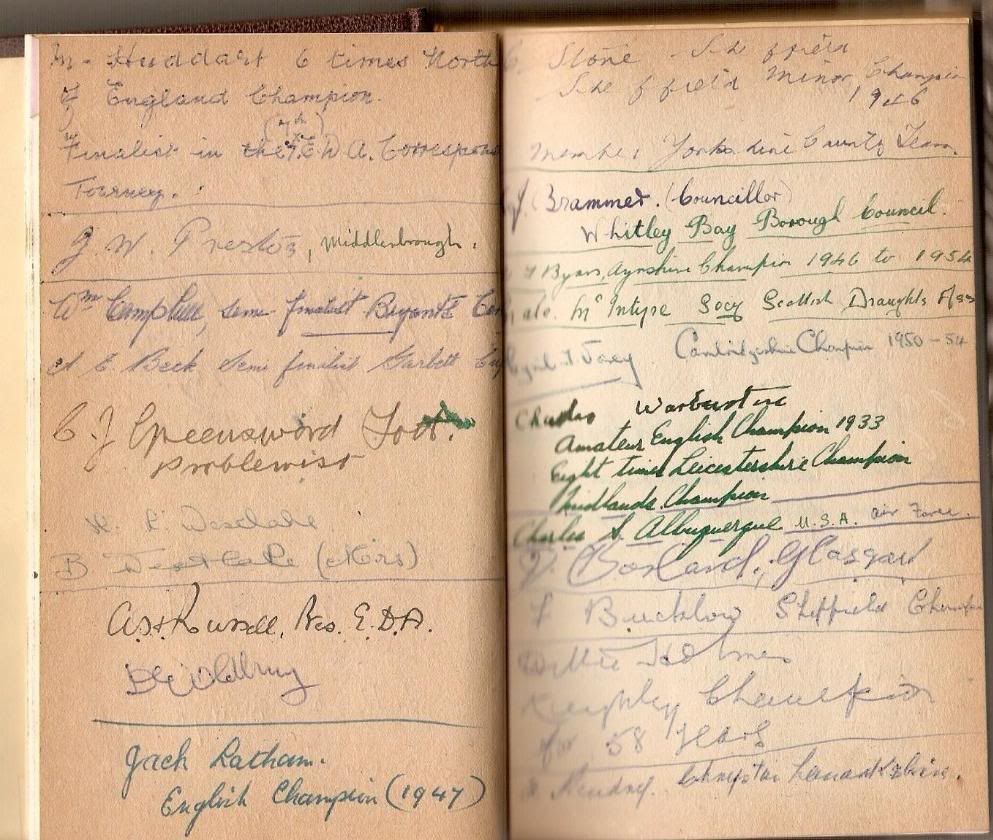 Huddart 6 times North
of England Champion.
Finalist in the 7th E.D.A. Correspond
Tourney.
J. W. Preston, Middlesbrough.
Wm Campbell, semi finalist
A E. Beck Semi finalist
C. J Greensword Tott.
Problemist
(Mrs)
Pres. E.D.A.
Jack Latham.
English Champion (1947)
Stone Sheffield
Sheffield Minor Champion
1946
Member Yorkshire County Team.
J. Brammer. (Councillor)
Whitley Bay Borough Council.
Ayrshire Champion 1946 to 1954
McIntyre Secy Scottish Draughts Assn
Cambridgeshire Champion 1950 - 54
Charles Warburton
Amateur English Champion 1933
Eight times Leicestershire Champion
Midlands Champion
Charles S. Albuquerque U.S.A. air Force.
Borland, Glasgow
Bucklow Sheffield Champion
Willie Holmes
Keighley Champion
for 38 years